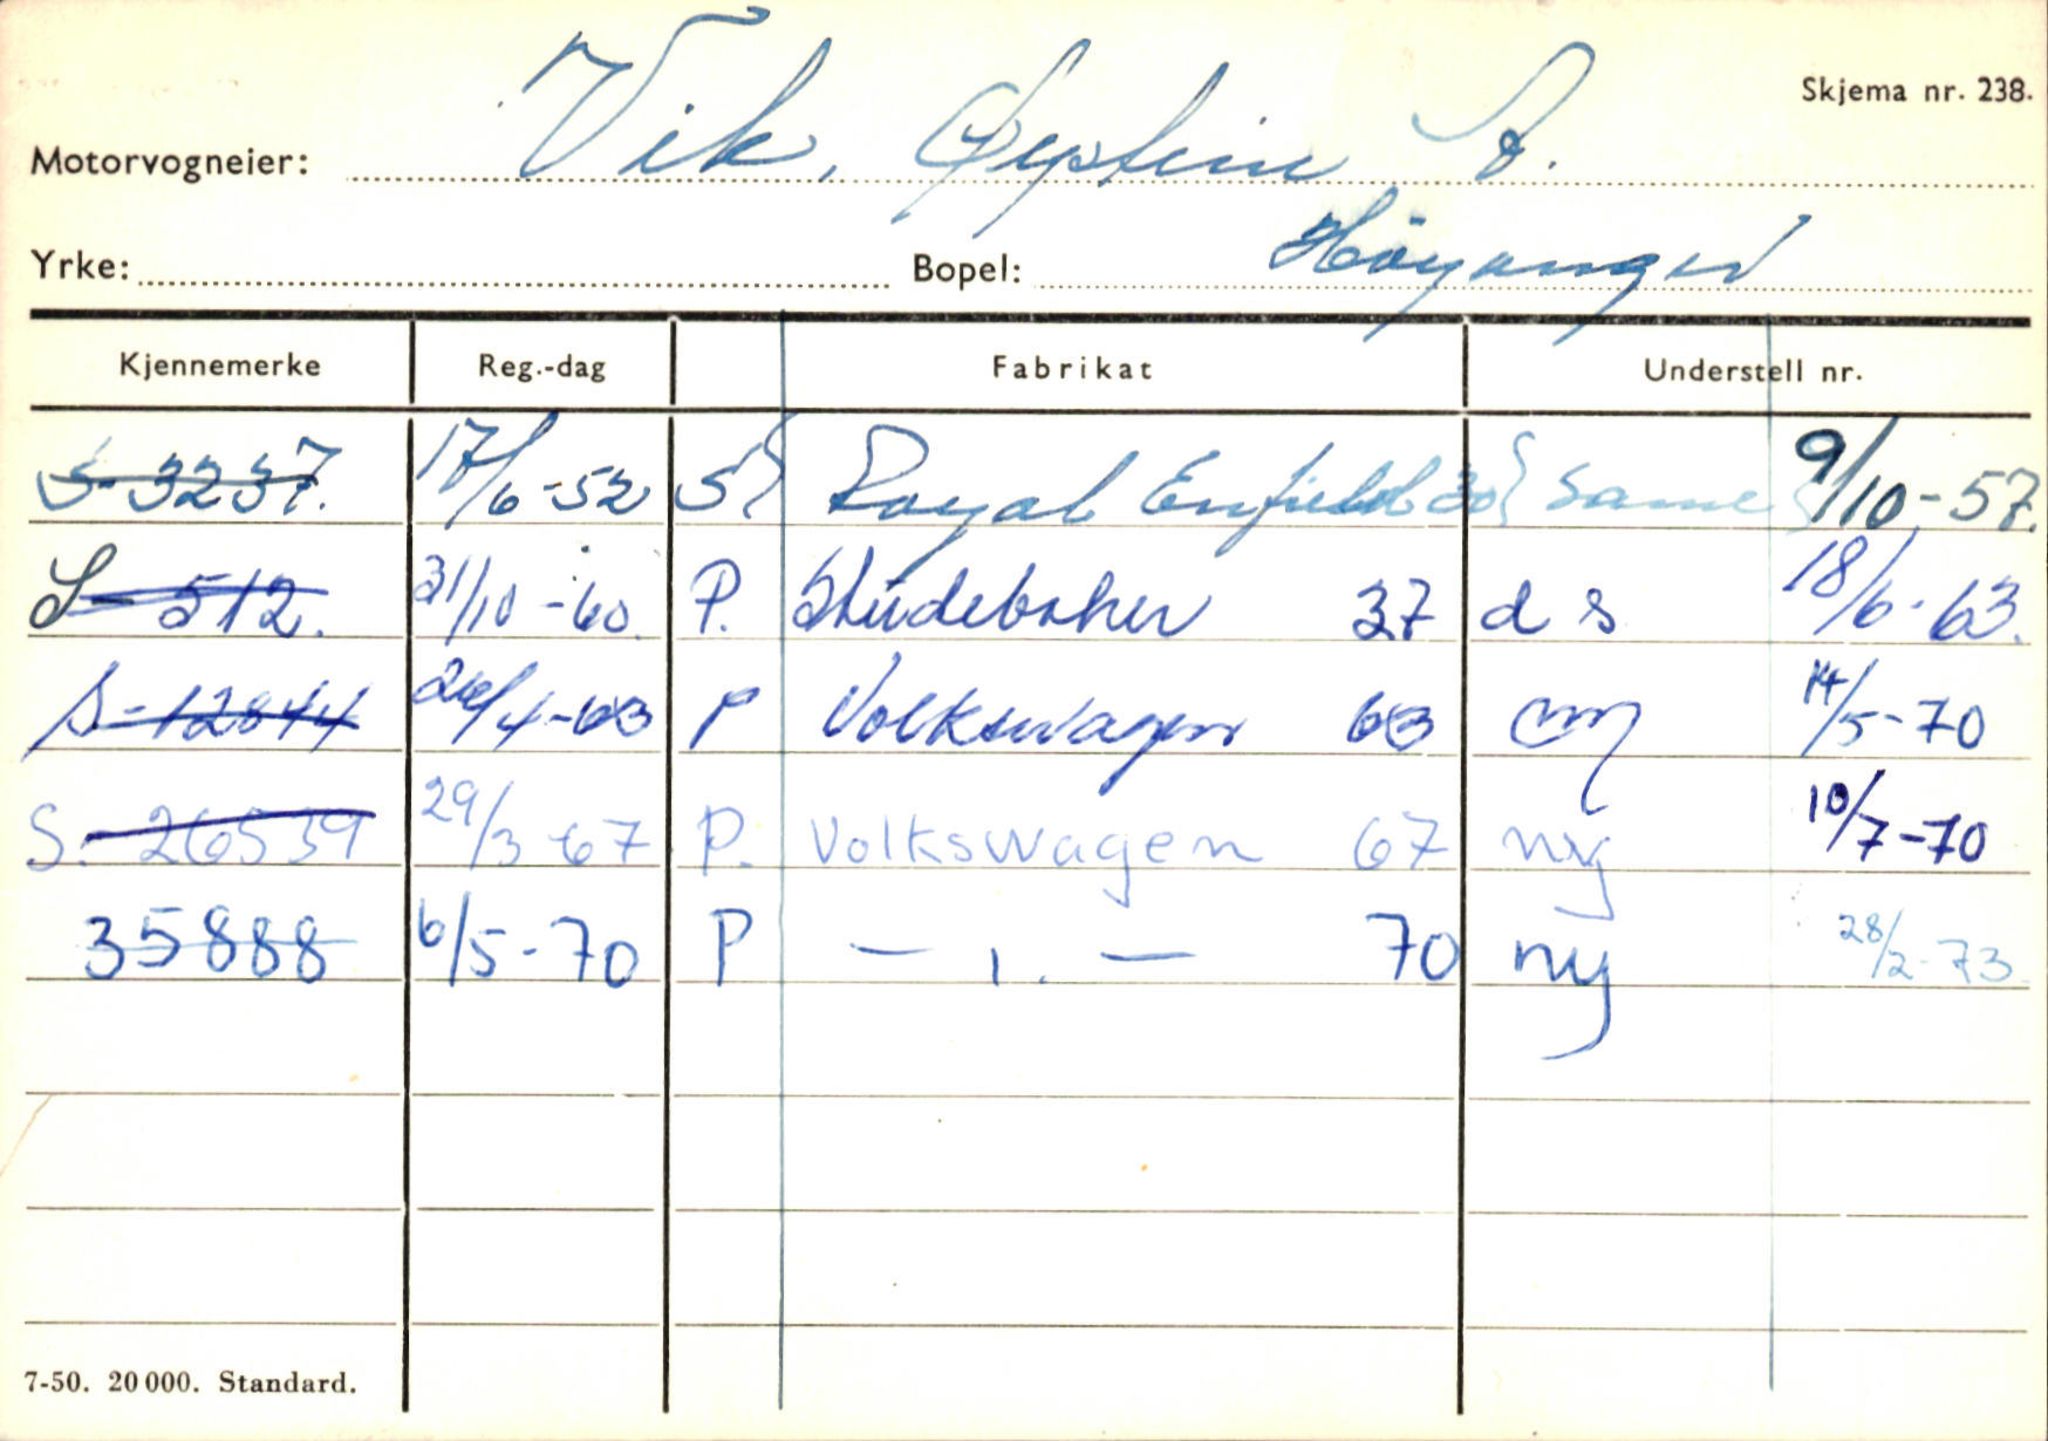 Skjema nr. 238.
Motorvogneier: Vik, Øystein A.
Yrke: Bopel: Höyanger
Kjennemerke Reg.-dag Fabrikat Understell nr.
S-3237. 17/6-52 S Royal Enfield 30 Same 9/10-57.
S-512. 31/10-60. P. Studebaker 37 d s 18/6-63.
S-12844 26/4-63 P Volkswagen 63 ny 14/5-70
S.-26539 29/3-67 P. Volkswagen 67 ny 10/7-70
35888 6/5-70 P — ı. — 70 ny 28/2-73.
7-50. 20 000. Standard.